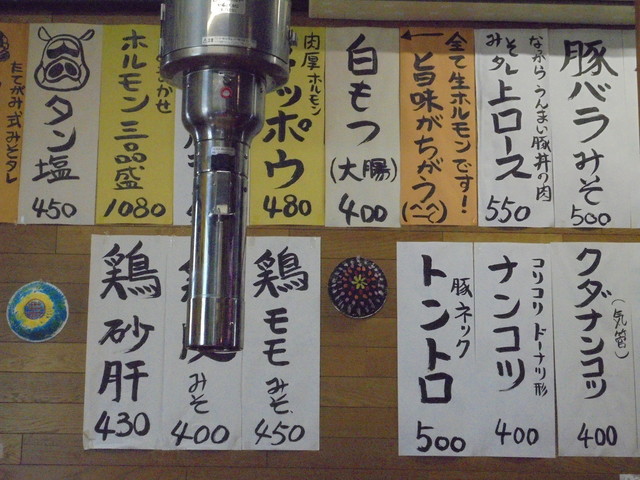 豚バラみそ
500
うんまい豚丼の肉
みそタレ上ロース
550
全て生ホルモンです!
旨味がちがう
白もつ
(大腸)
400
肉厚ホルモン
ッポウ
480
まかせ
ホルモン三品盛
1080
タン塩
450
みそタレ
クダナンコツ
(気管)
400
コリコリ ドーナツ形
ナンコツ
400
豚ネック
トントロ
500
鶏モモみそ
450
みそ
400
鶏砂肝
430